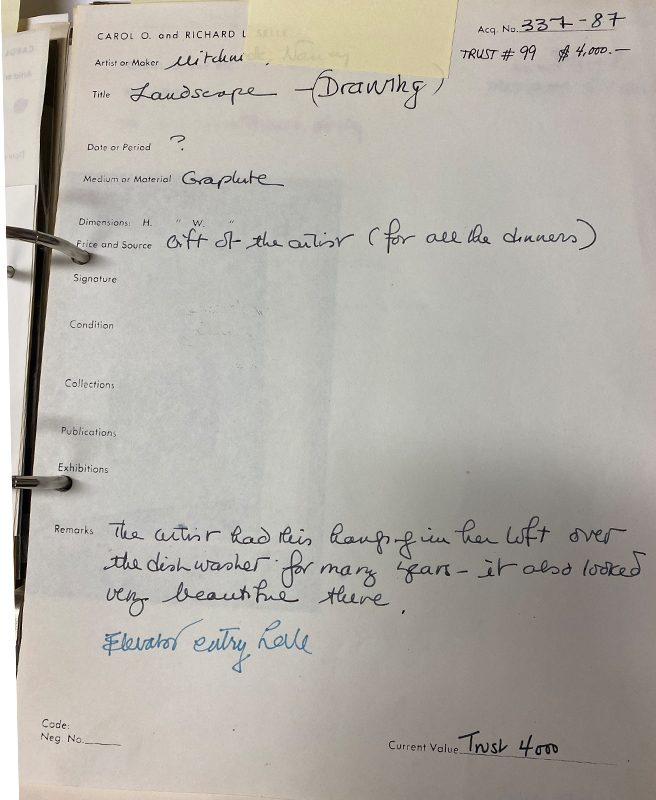 CAROL O. and RICHARD L
Acq. No. 337-87
TRUST # 99 $4,000.—
Artist or Maker
Title Landscape - (Drawing)
Date or Period ?
Medium or Material Graphite
Dimensions: H. " W. "
Price and Source Gift of the artist (for all the dinners)
Signature
Condition
Collections
Publications
Exhibitions
Remarks The artist had this hanging in her loft over
the dishwasher for many years - it also looked
very beautiful there.
Elevator entry hall
Code:
Neg. No.
Current Value Trust 4000